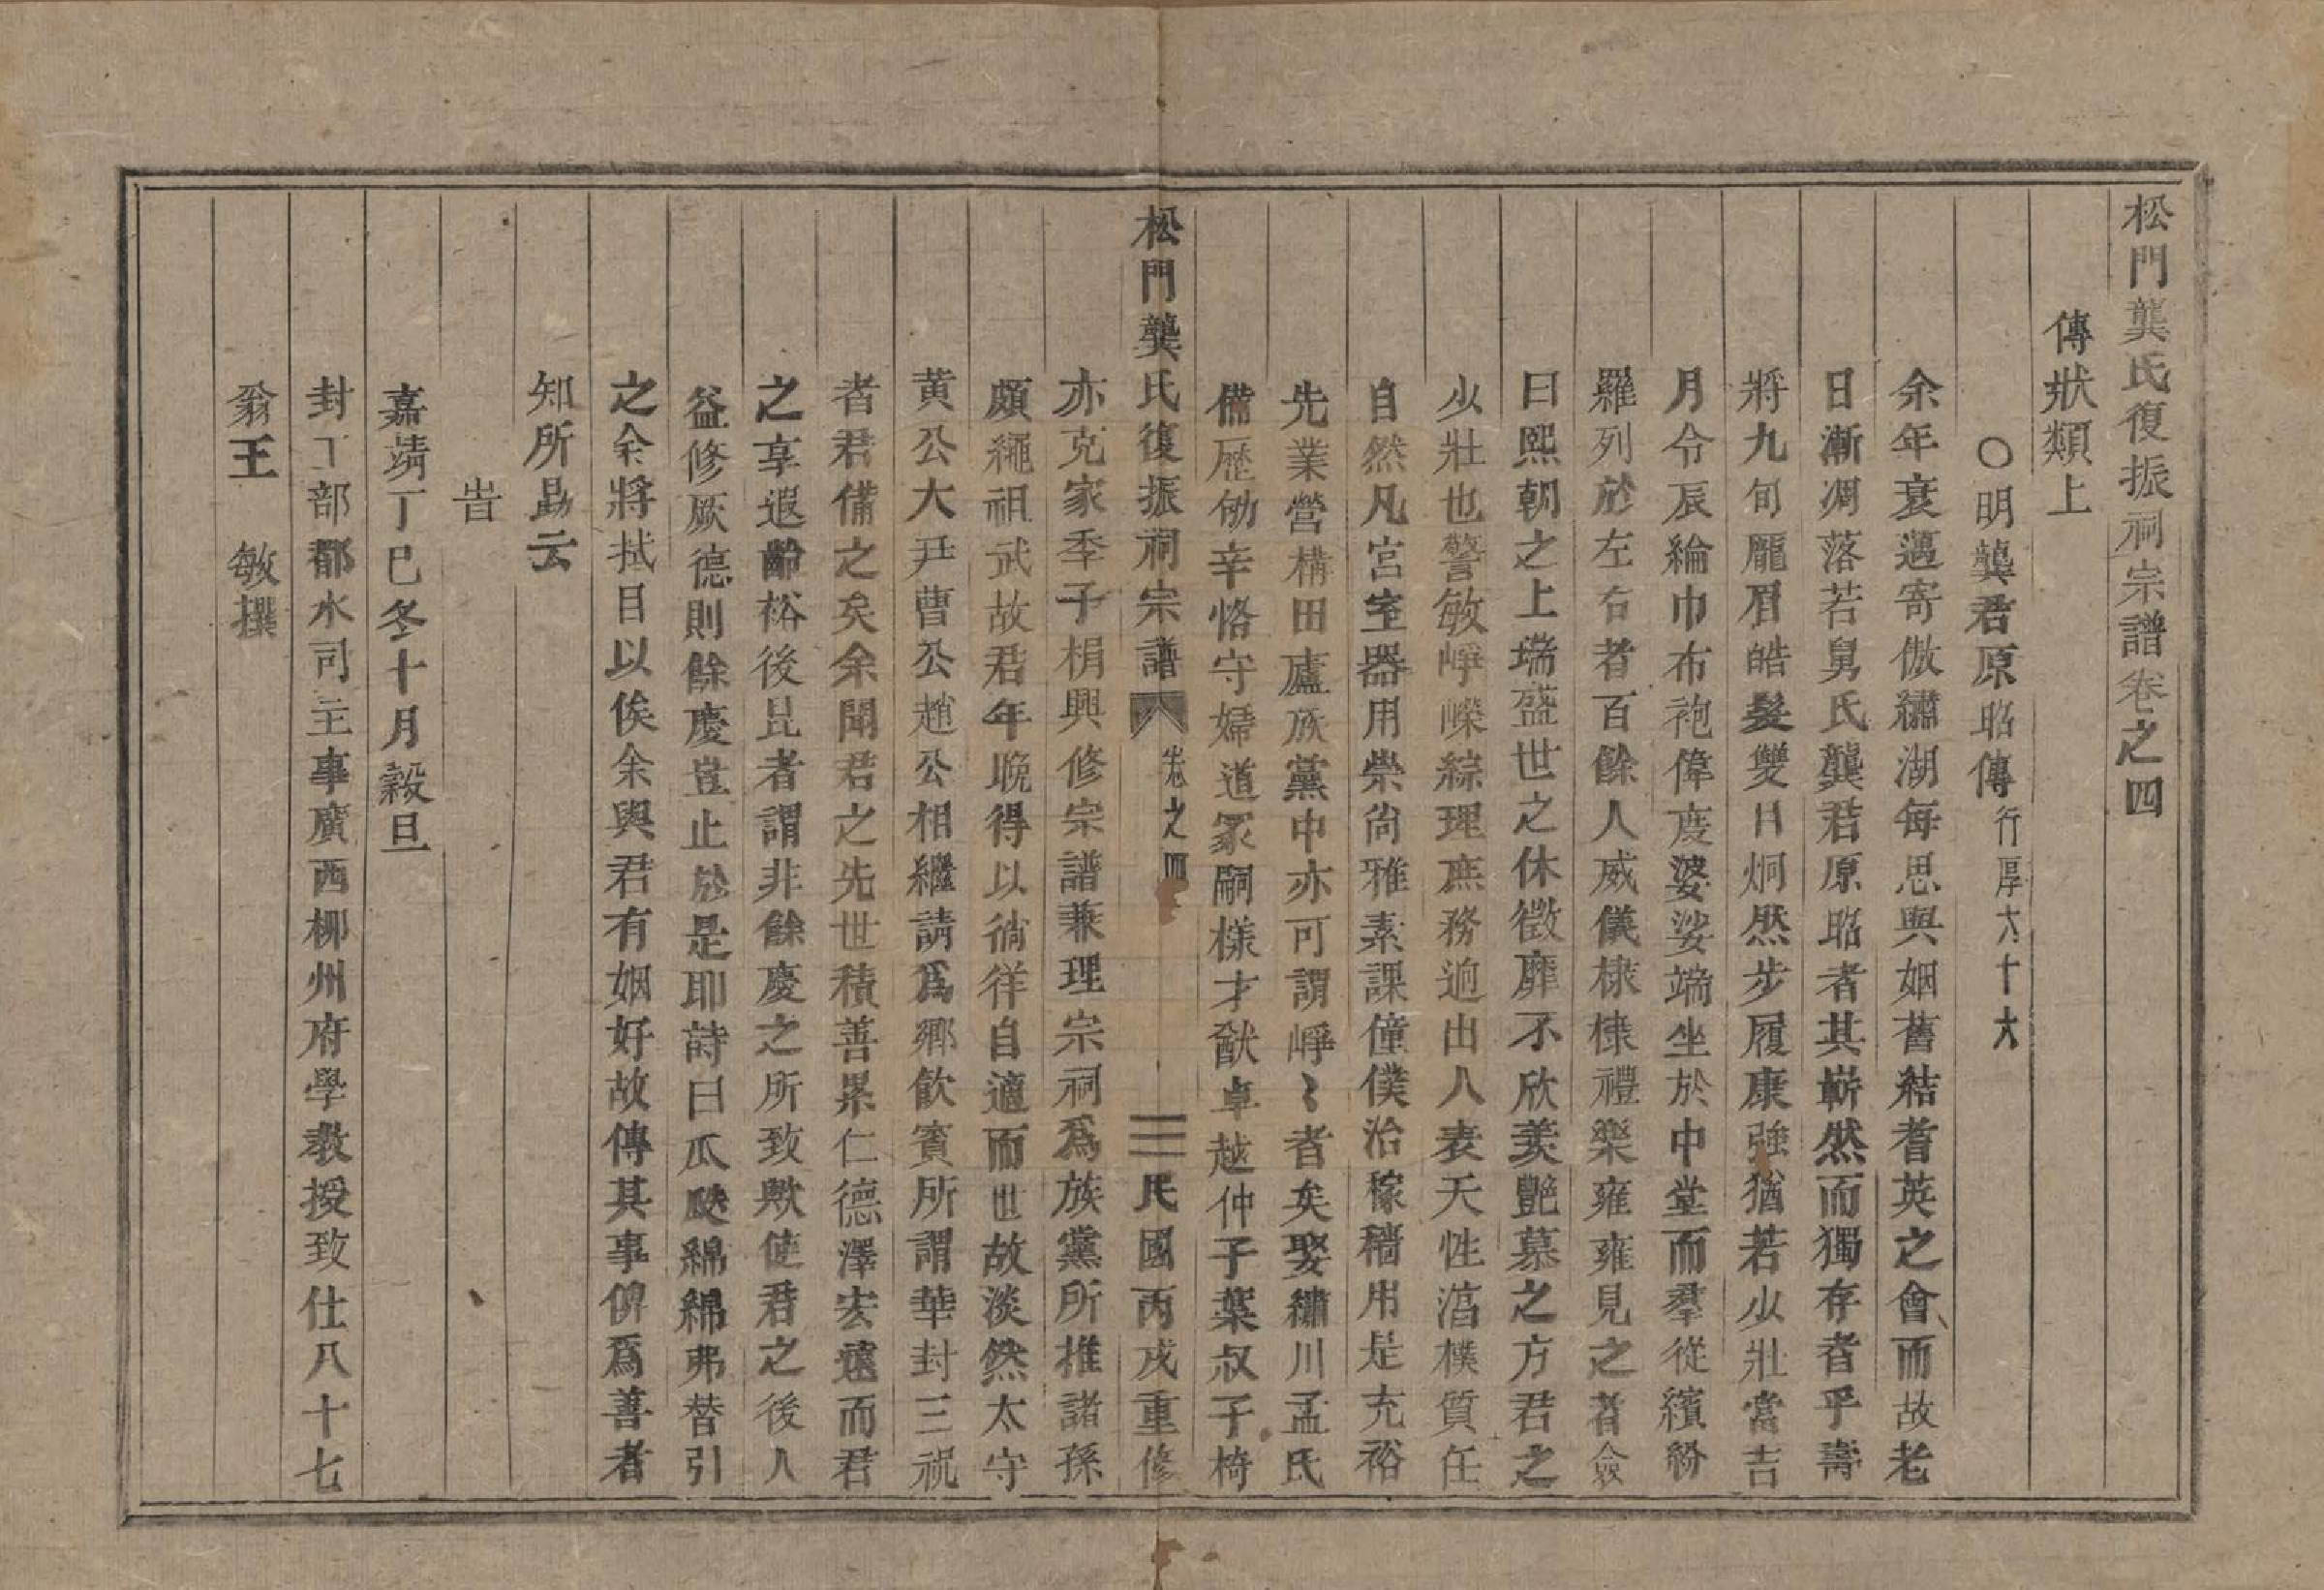 松門龔氏復振祠宗譜卷之四
傳狀類上
〇明龔君原昭傳行厚六十六
余年衰邁寄傲繡湖每思與姻舊結耆英之會而故老
日漸凋落若舅氏龔君原昭者其嶄然而獨存者乎壽
將九旬龐眉皓髮雙目炯然步履康強猶若少壯當吉
月令辰綸巾布袍偉度婆娑端坐於中堂而羣從繽紛
羅列於左右者百餘人威儀棣棣禮樂雍雍見之者僉
曰熙朝之上瑞盛世之休徵靡不欣羨艷慕之方君之
少壯也警敏崢嶸綜理庶務逈出人表天性湻樸質任
自然凡宮室器用崇尙雅素課僮僕治稼穡用是充裕
先業營構田廬族黨中亦可謂崢〻者矣娶繡川孟氏
備歷劬辛恪守婦道冢嗣樣才猷卓越仲子葉叔子椅
松門龔氏復振祠宗譜 卷之四 三 民國丙戌重修
亦克家季子梋興修宗譜兼理宗祠爲族黨所推諸孫
頗繩祖武故君年晚得以徜徉自適而世故淡然太守
黄公大尹曹公趙公相繼請爲鄉飲賓所謂華封三祝
者君備之矣余聞君之先世積善累仁德澤宏遠而君
之享遐齡裕後昆者謂非餘慶之所致歟使君之後人
益修厥德則餘慶豈止於是耶詩曰瓜瓞綿綿弗替引
之余將拭目以俟余與君有姻好故傳其事俾爲善者
知所勗云
旹
嘉靖丁巳冬十月穀旦
封工部都水司主事廣西柳州府學教授致仕八十七
翁王 敏撰